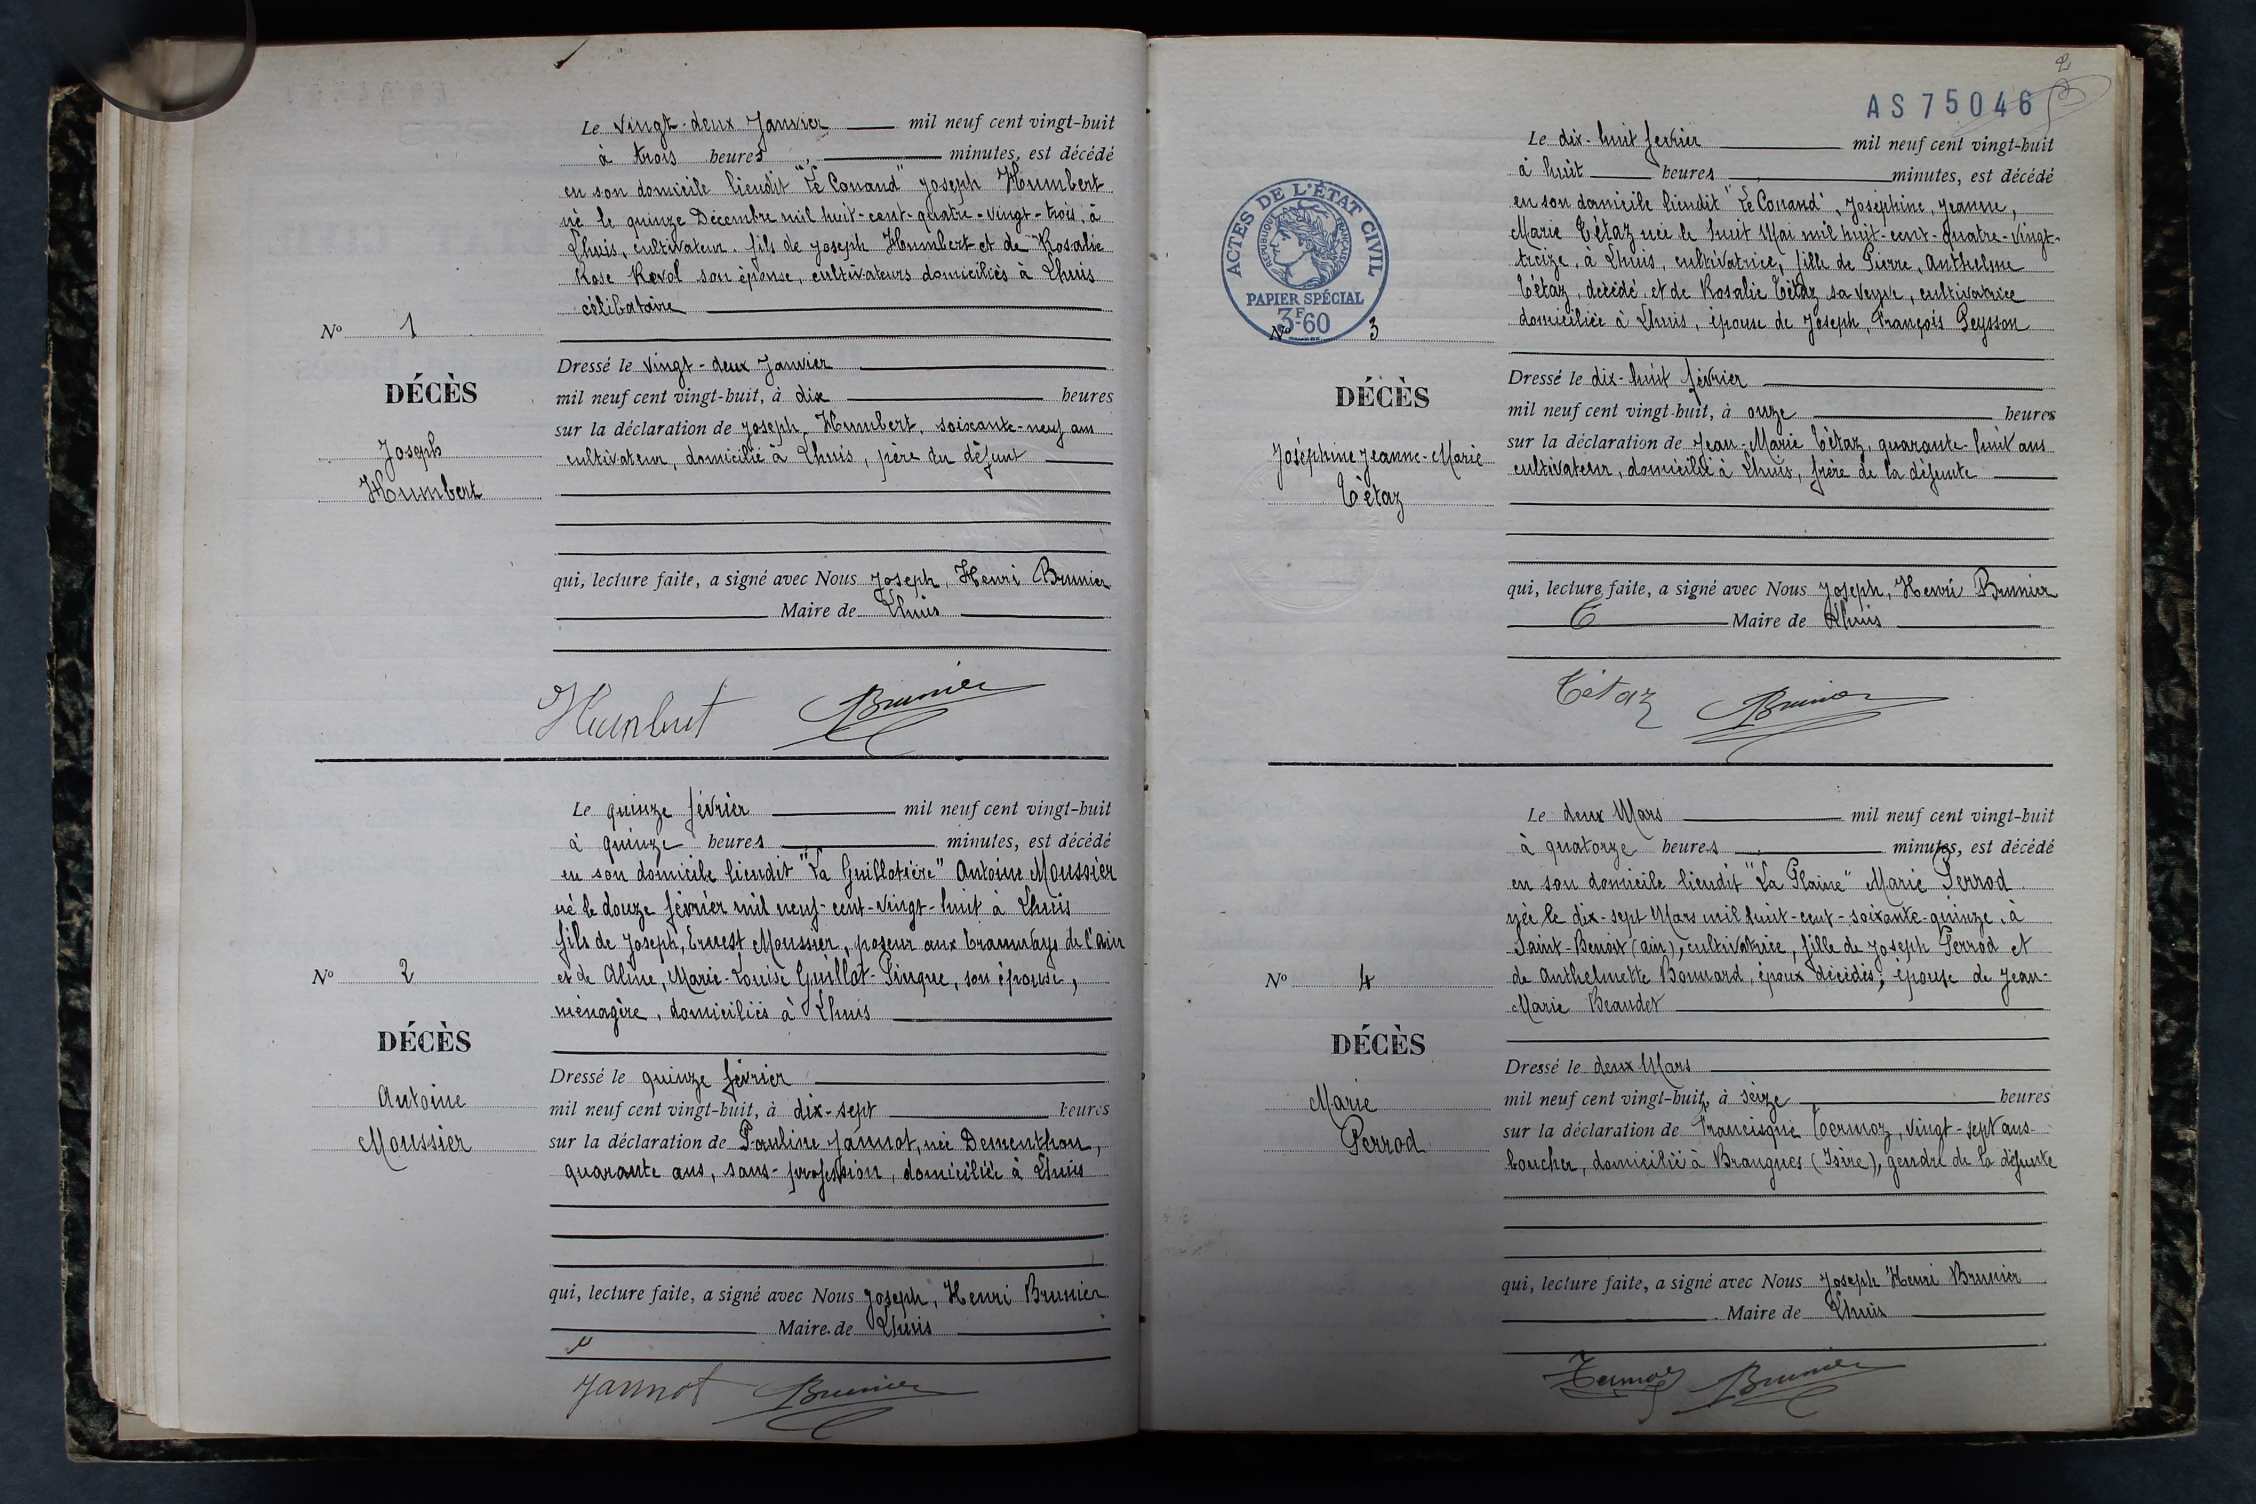 Le vingt-deux Janvier mil neuf cent vingt-huit
à trois heures, minutes, est décédé
en son domicile lieudit "Le Conand" Joseph Humbert
né le quinze Décembre mil huit-cent-quatre-vingt-trois, à
Lhuis, cultivateur. fils de Joseph Humbert et de Rosalie
Rose Revol son épouse, cultivateurs domiciliés à Lhuis
célibataire
N° 1
DÉCÈS
Joseph
Humbert
Dressé le vingt-deux Janvier
mil neuf cent vingt-huit, à dix heures
sur la déclaration de Joseph Humbert, soixante-neuf ans
cultivateur, domicilié à Lhuis, père du défunt
qui, lecture faite, a signé avec Nous Joseph, Henri Brunier
Maire de Lhuis
Humbert Brunier
Le quinze février mil neuf cent vingt-huit
à quinze heures, minutes, est décédé
en son domicile lieudit "La Guillotière" Antoine Moussier
né le douze février mil neuf-cent-vingt-huit à Lhuis
fils de Joseph, Ernest Moussier, poseur aux tramways de l'ain
et de Aline, Marie-Louise Guillot-Pingue, son épouse,
ménagère, domiciliés à Lhuis
N° 2
DÉCÈS
Antoine
Moussier
Dressé le quinze février
mil neuf cent vingt-huit, à dix-sept heures
sur la déclaration de Pauline Jannot, née Dementhon,
quarante ans, sans-profession, domiciliée à Lhuis
qui, lecture faite, a signé avec Nous Joseph, Henri Brunier
Maire de Lhuis
Jannot Brunier
2
AS 75046
ACTES DE L'ÉTAT CIVIL
RÉPUBLIQUE FRANÇAISE
PAPIER SPÉCIAL
3F60
Le dix-huit fevrier mil neuf cent vingt-huit
à huit heures, minutes, est décédé
en son domicile lieudit "Le Conand", Joséphine, Jeanne,
Marie Tétaz née le huit Mai mil huit-cent-quatre-vingt-
treize, à Lhuis, cultivatrice, fille de Pierre, Anthelme
Tétaz, décédé, et de Rosalie Tétaz sa veuve, cultivatrice
domiciliée à Lhuis, épouse de Joseph, François Peysson
N° 3
DÉCÈS
Joséphine Jeanne-Marie
Tétaz
Dressé le dix-huit février
mil neuf cent vingt-huit, à onze heures
sur la déclaration de Jean-Marie Tétaz, quarante-huit ans
cultivateur, domicilié à Lhuis, frère de la défunte
qui, lecture faite, a signé avec Nous Joseph, Henri Brunier
Maire de Lhuis
Tétaz Brunier
Le deux Mars mil neuf cent vingt-huit
à quatorze heures, minutes, est décédé
en son domicile lieudit "La Plaine" Marie Perrod
née le dix-sept Mars mil huit-cent-soixante-quinze, à
Saint-Benoit (ain), cultivatrice, fille de Joseph Perrod et
de Anthelmette Bonnard, époux décédés; épouse de Jean-
Marie Beaudet
N° 4
DÉCÈS
Marie
Perrod
Dressé le deux Mars
mil neuf cent vingt-huit, à seize heures
sur la déclaration de Francisque Termoz, vingt-sept ans
boucher, domicilié à Brangues (Isère), gendre de la défunte
qui, lecture faite, a signé avec Nous Joseph Henri Brunier
Maire de Lhuis
Termoz Brunier